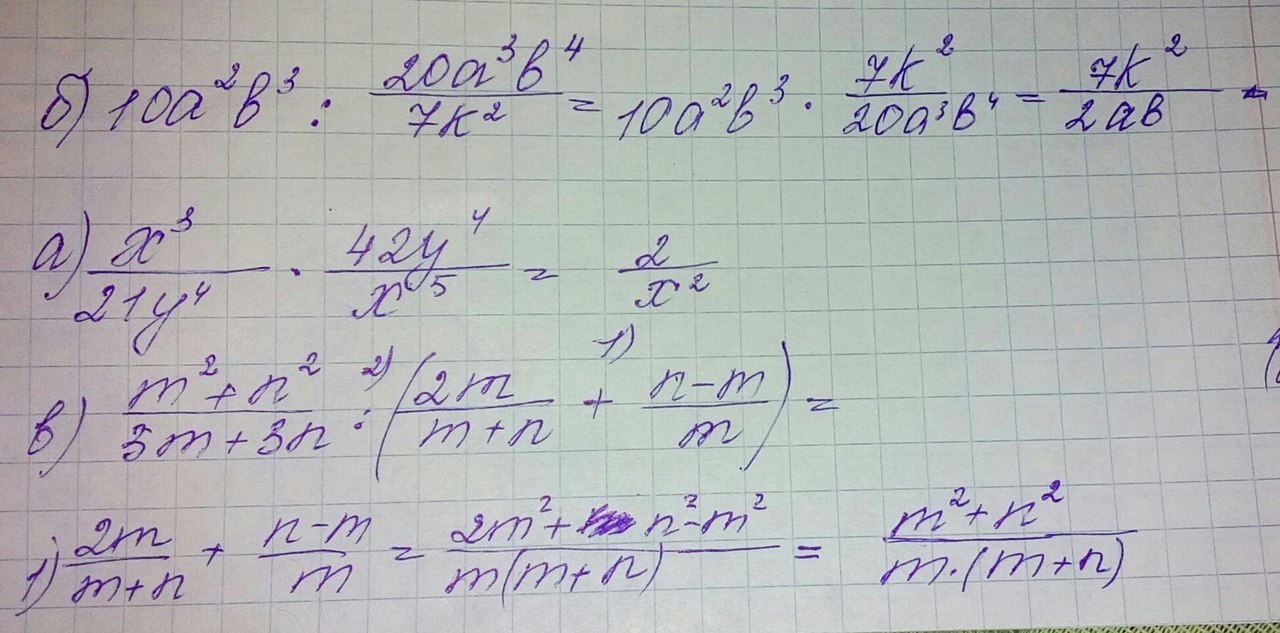 б) 10a²b³ : 20a³b⁴/7k² = 10a²b³ · 7k²/20a³b⁴ = 7k²/2ab -
а) x³/21y⁴ · 42y⁴/x⁵ = 2/x²
в) (m² + n²)/(3m + 3n) :²⁾ (2m/(m + n) +¹⁾ (n - m)/m) =
1) 2m/(m + n) + (n - m)/m = (2m² + n² - m²)/m(m + n) = (m² + n²)/m·(m + n)